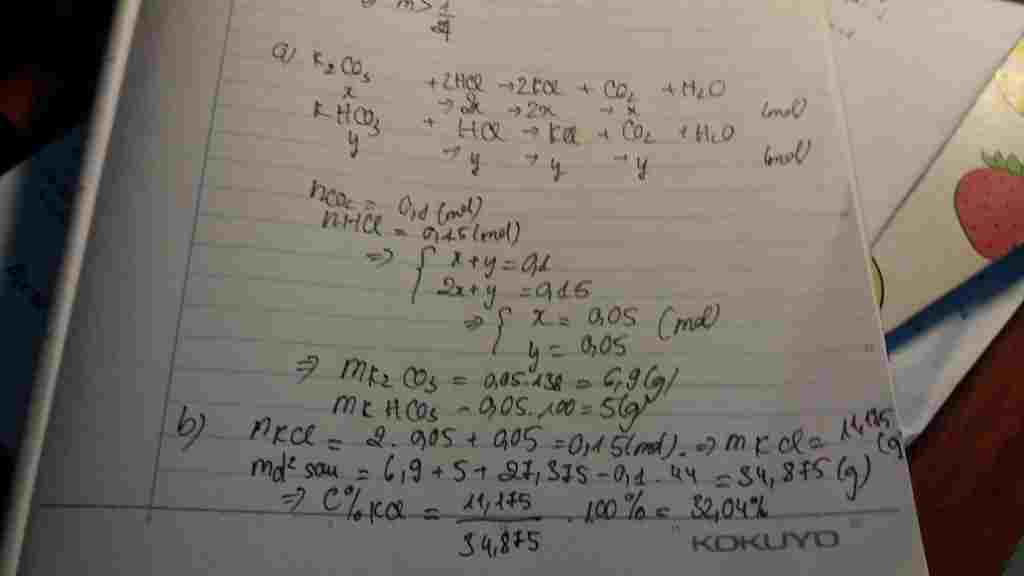 m > 1/24
a) K2CO3 + 2HCl → 2KCl + CO2 + H2O
x → 2x → 2x → x (mol)
KHCO3 + HCl → KCl + CO2 + H2O
y → y → y → y (mol)
nCO2 = 0,1 (mol)
nHCl = 0,15 (mol)
=> { x + y = 0,1
2x + y = 0,15
=> { x = 0,05 (mol)
y = 0,05
=> mK2CO3 = 0,05.138 = 6,9 (g)
mKHCO3 = 0,05.100 = 5 (g)
b) nKCl = 2.0,05 + 0,05 = 0,15 (mol). => mKCl = 11,175 (g)
md² sau = 6,9 + 5 + 27,375 - 0,1.44 = 34,875 (g)
=> C%KCl = 11,175/34,875 . 100% = 32,04%
KOKUYO